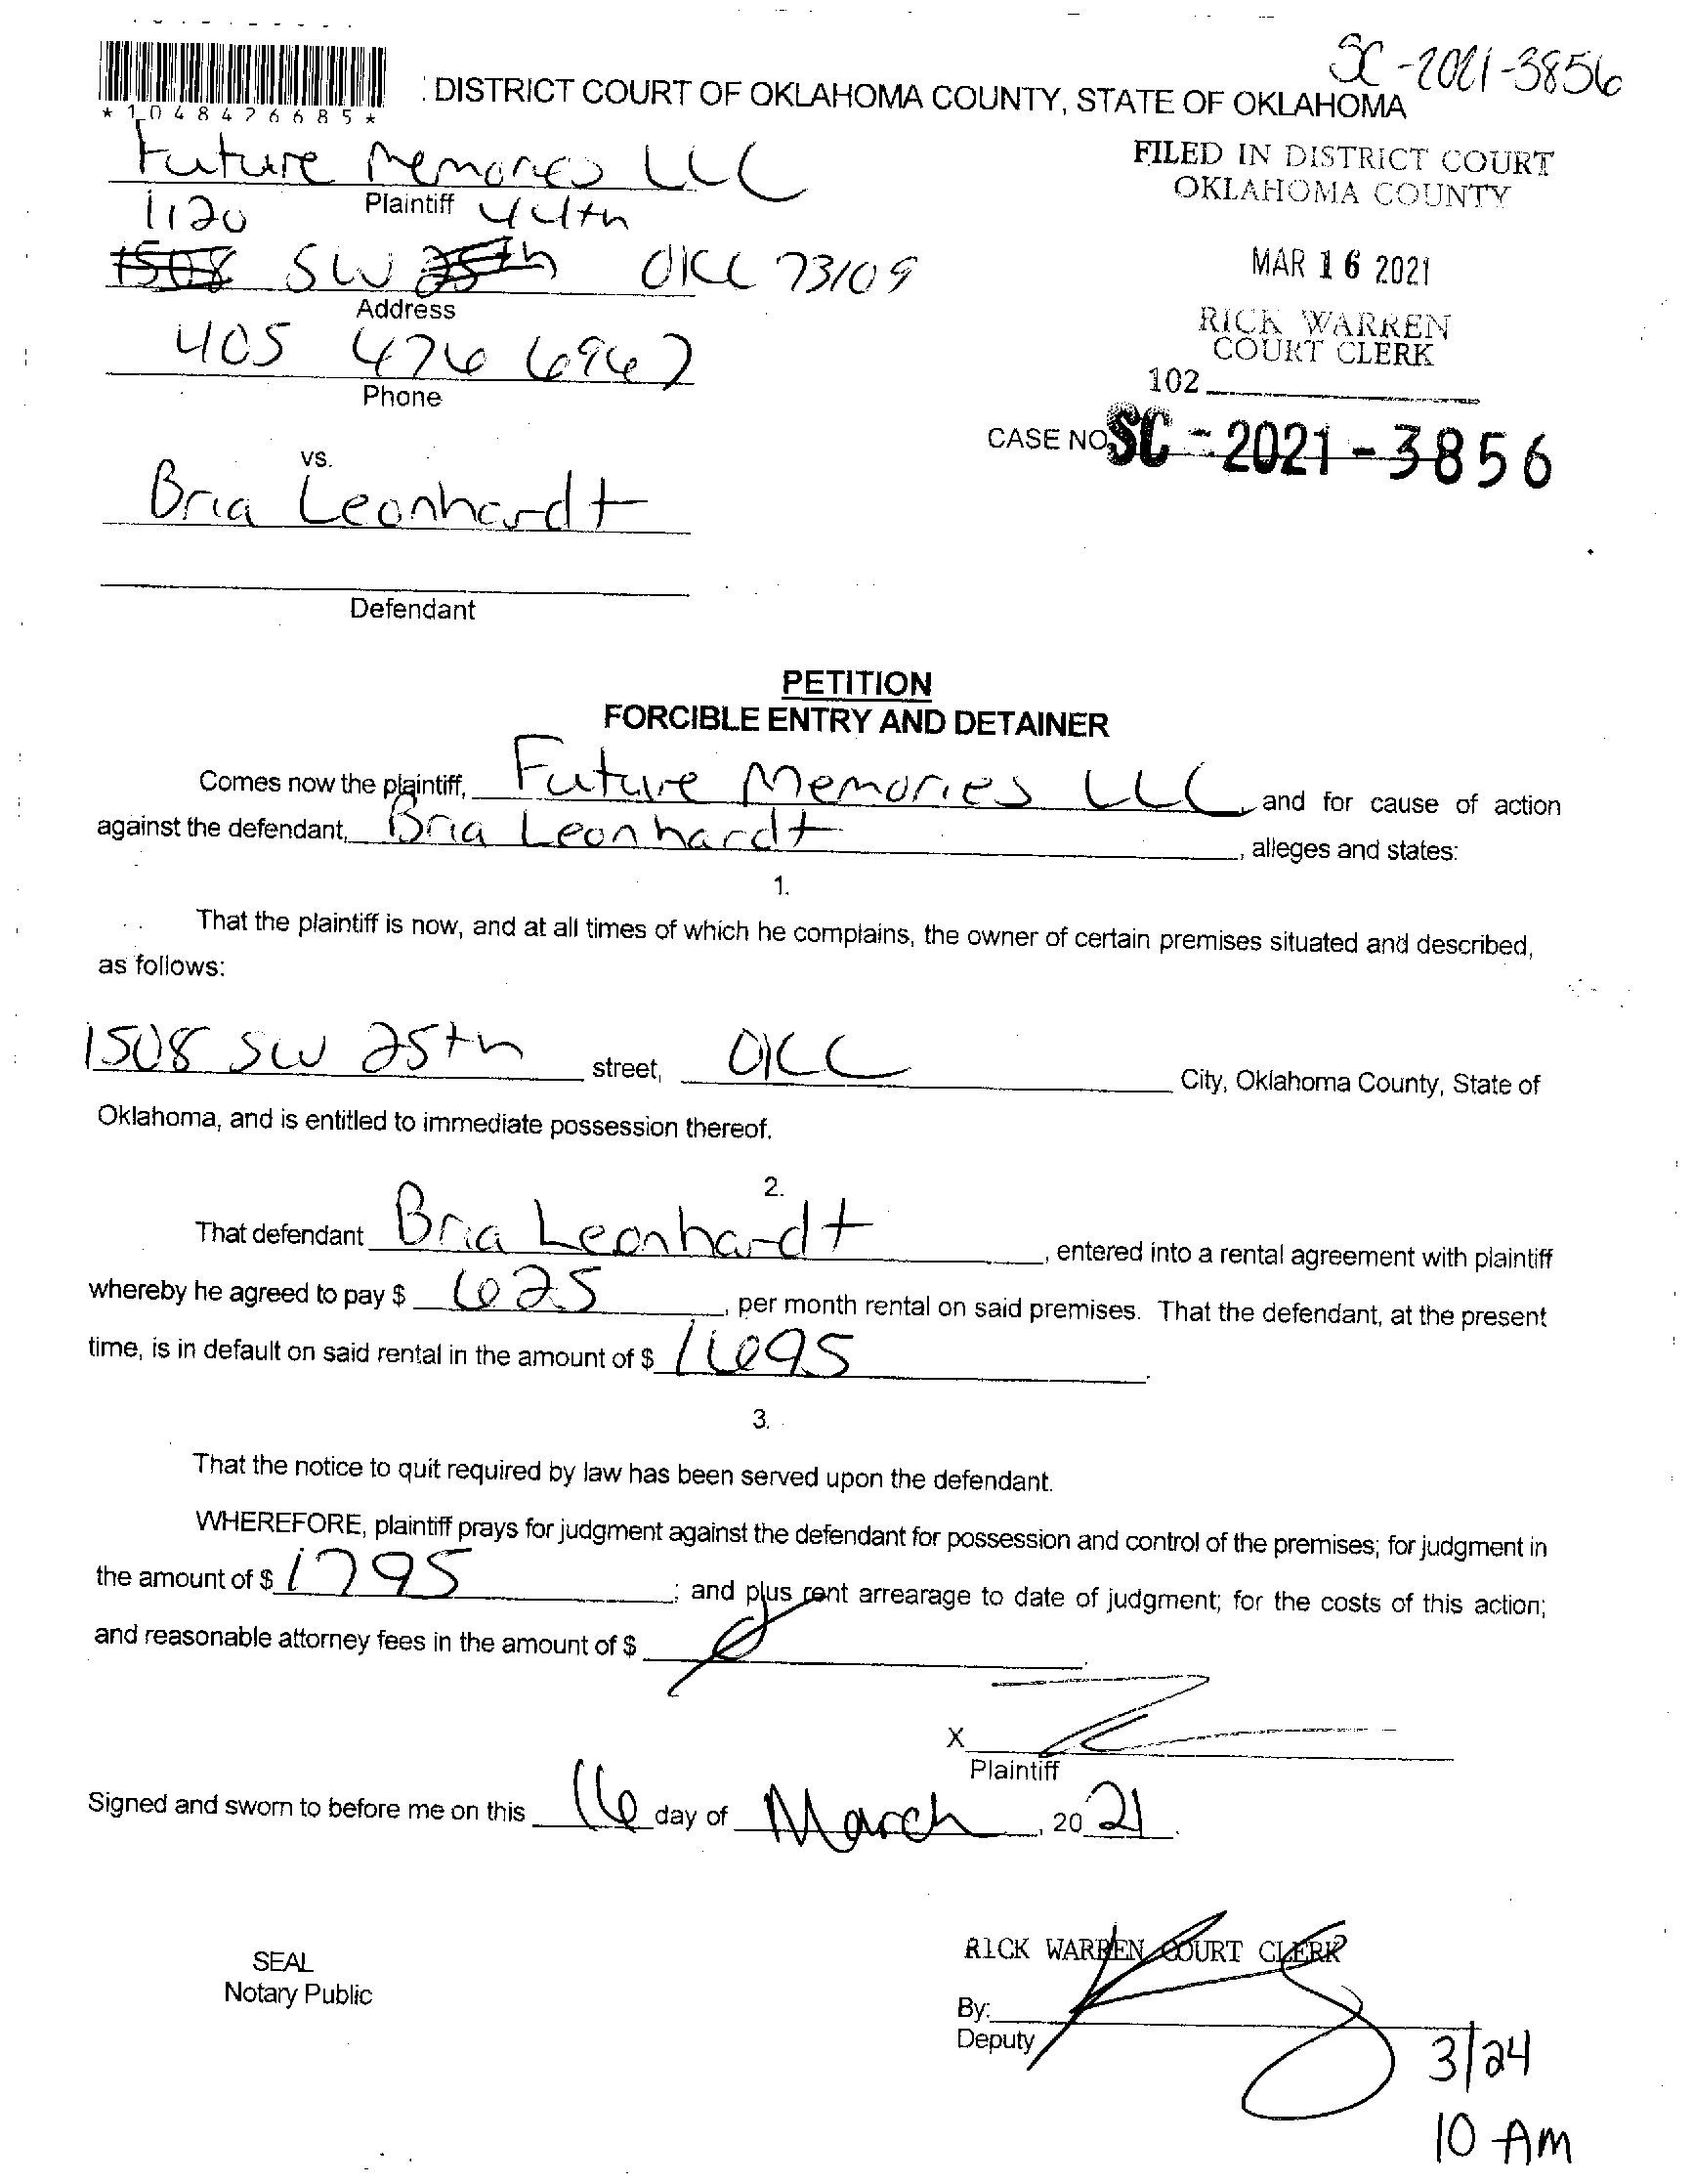 SC-2021-3856
*1048426685*
DISTRICT COURT OF OKLAHOMA COUNTY, STATE OF OKLAHOMA
Future Memories LLC
Plaintiff
1120 44th
1508 SW 25th OKC 73109
Address
405 476 6967
Phone
FILED IN DISTRICT COURT
OKLAHOMA COUNTY
MAR 16 2021
RICK WARREN
COURT CLERK
102
CASE NO. SC-2021-3856
vs.
Bria Leonhardt
Defendant
PETITION
FORCIBLE ENTRY AND DETAINER
Comes now the plaintiff, Future Memories LLC, and for cause of action
against the defendant, Bria Leonhardt, alleges and states:
1.
That the plaintiff is now, and at all times of which he complains, the owner of certain premises situated and described,
as follows:
1508 SW 25th street, OKC City, Oklahoma County, State of
Oklahoma, and is entitled to immediate possession thereof.
2.
That defendant Bria Leonhardt, entered into a rental agreement with plaintiff
whereby he agreed to pay $ 625, per month rental on said premises. That the defendant, at the present
time, is in default on said rental in the amount of $ 1695.
3.
That the notice to quit required by law has been served upon the defendant.
WHEREFORE, plaintiff prays for judgment against the defendant for possession and control of the premises; for judgment in
the amount of $ 1795; and plus rent arrearage to date of judgment; for the costs of this action;
and reasonable attorney fees in the amount of $
X
Plaintiff
Signed and sworn to before me on this 16 day of March, 2021.
SEAL
Notary Public
RICK WARREN COURT CLERK
By:
Deputy
3/24
10 AM